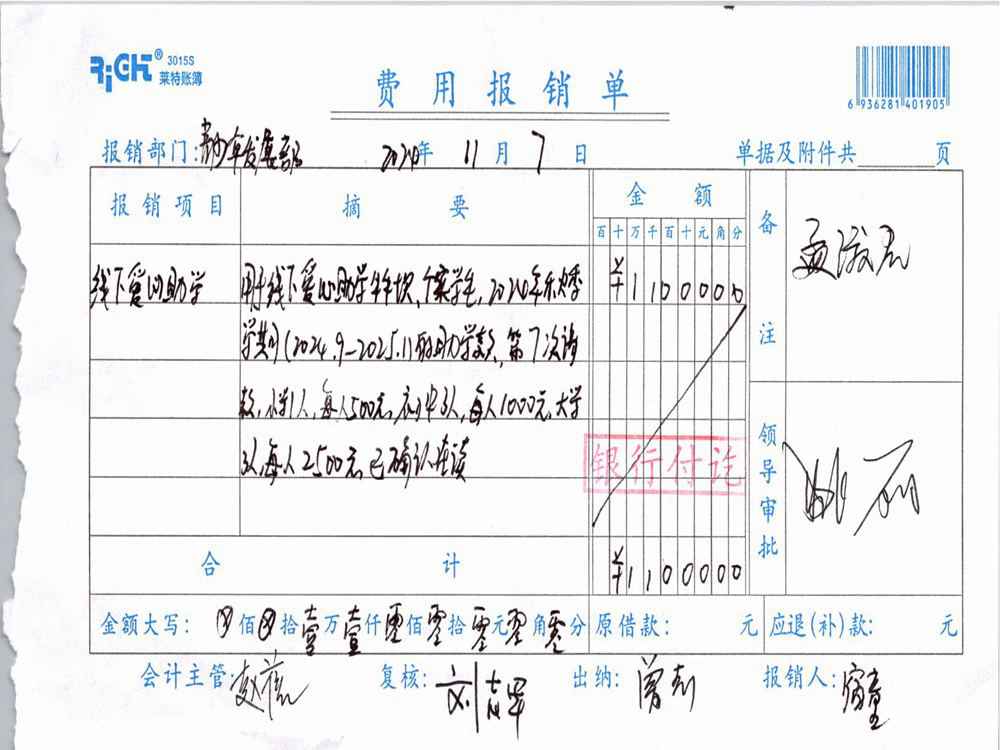 RiGHT® 3015S
莱特账簿
费用报销单
6 936281 401905
报销部门: 青少年发展部 2024年 11月 7日 单据及附件共 页
报销项目 摘要 金额 备注
百十万千百十元角分
线下爱心助学 用于线下爱心助学 个案学生,2024年秋季 ¥1100000
学期(2024.9-2025.1)的助学款,第7次请
款,小学1人,每人500元,初中3人,每人1000元,大学
3人,每人2500元,已确认在读
银行付讫
领导审批
合计 ¥1100000
金额大写: ⊗佰⊗拾壹万壹仟零佰零拾零元零角零分 原借款: 元 应退(补)款: 元
会计主管: 复核: 出纳: 报销人: